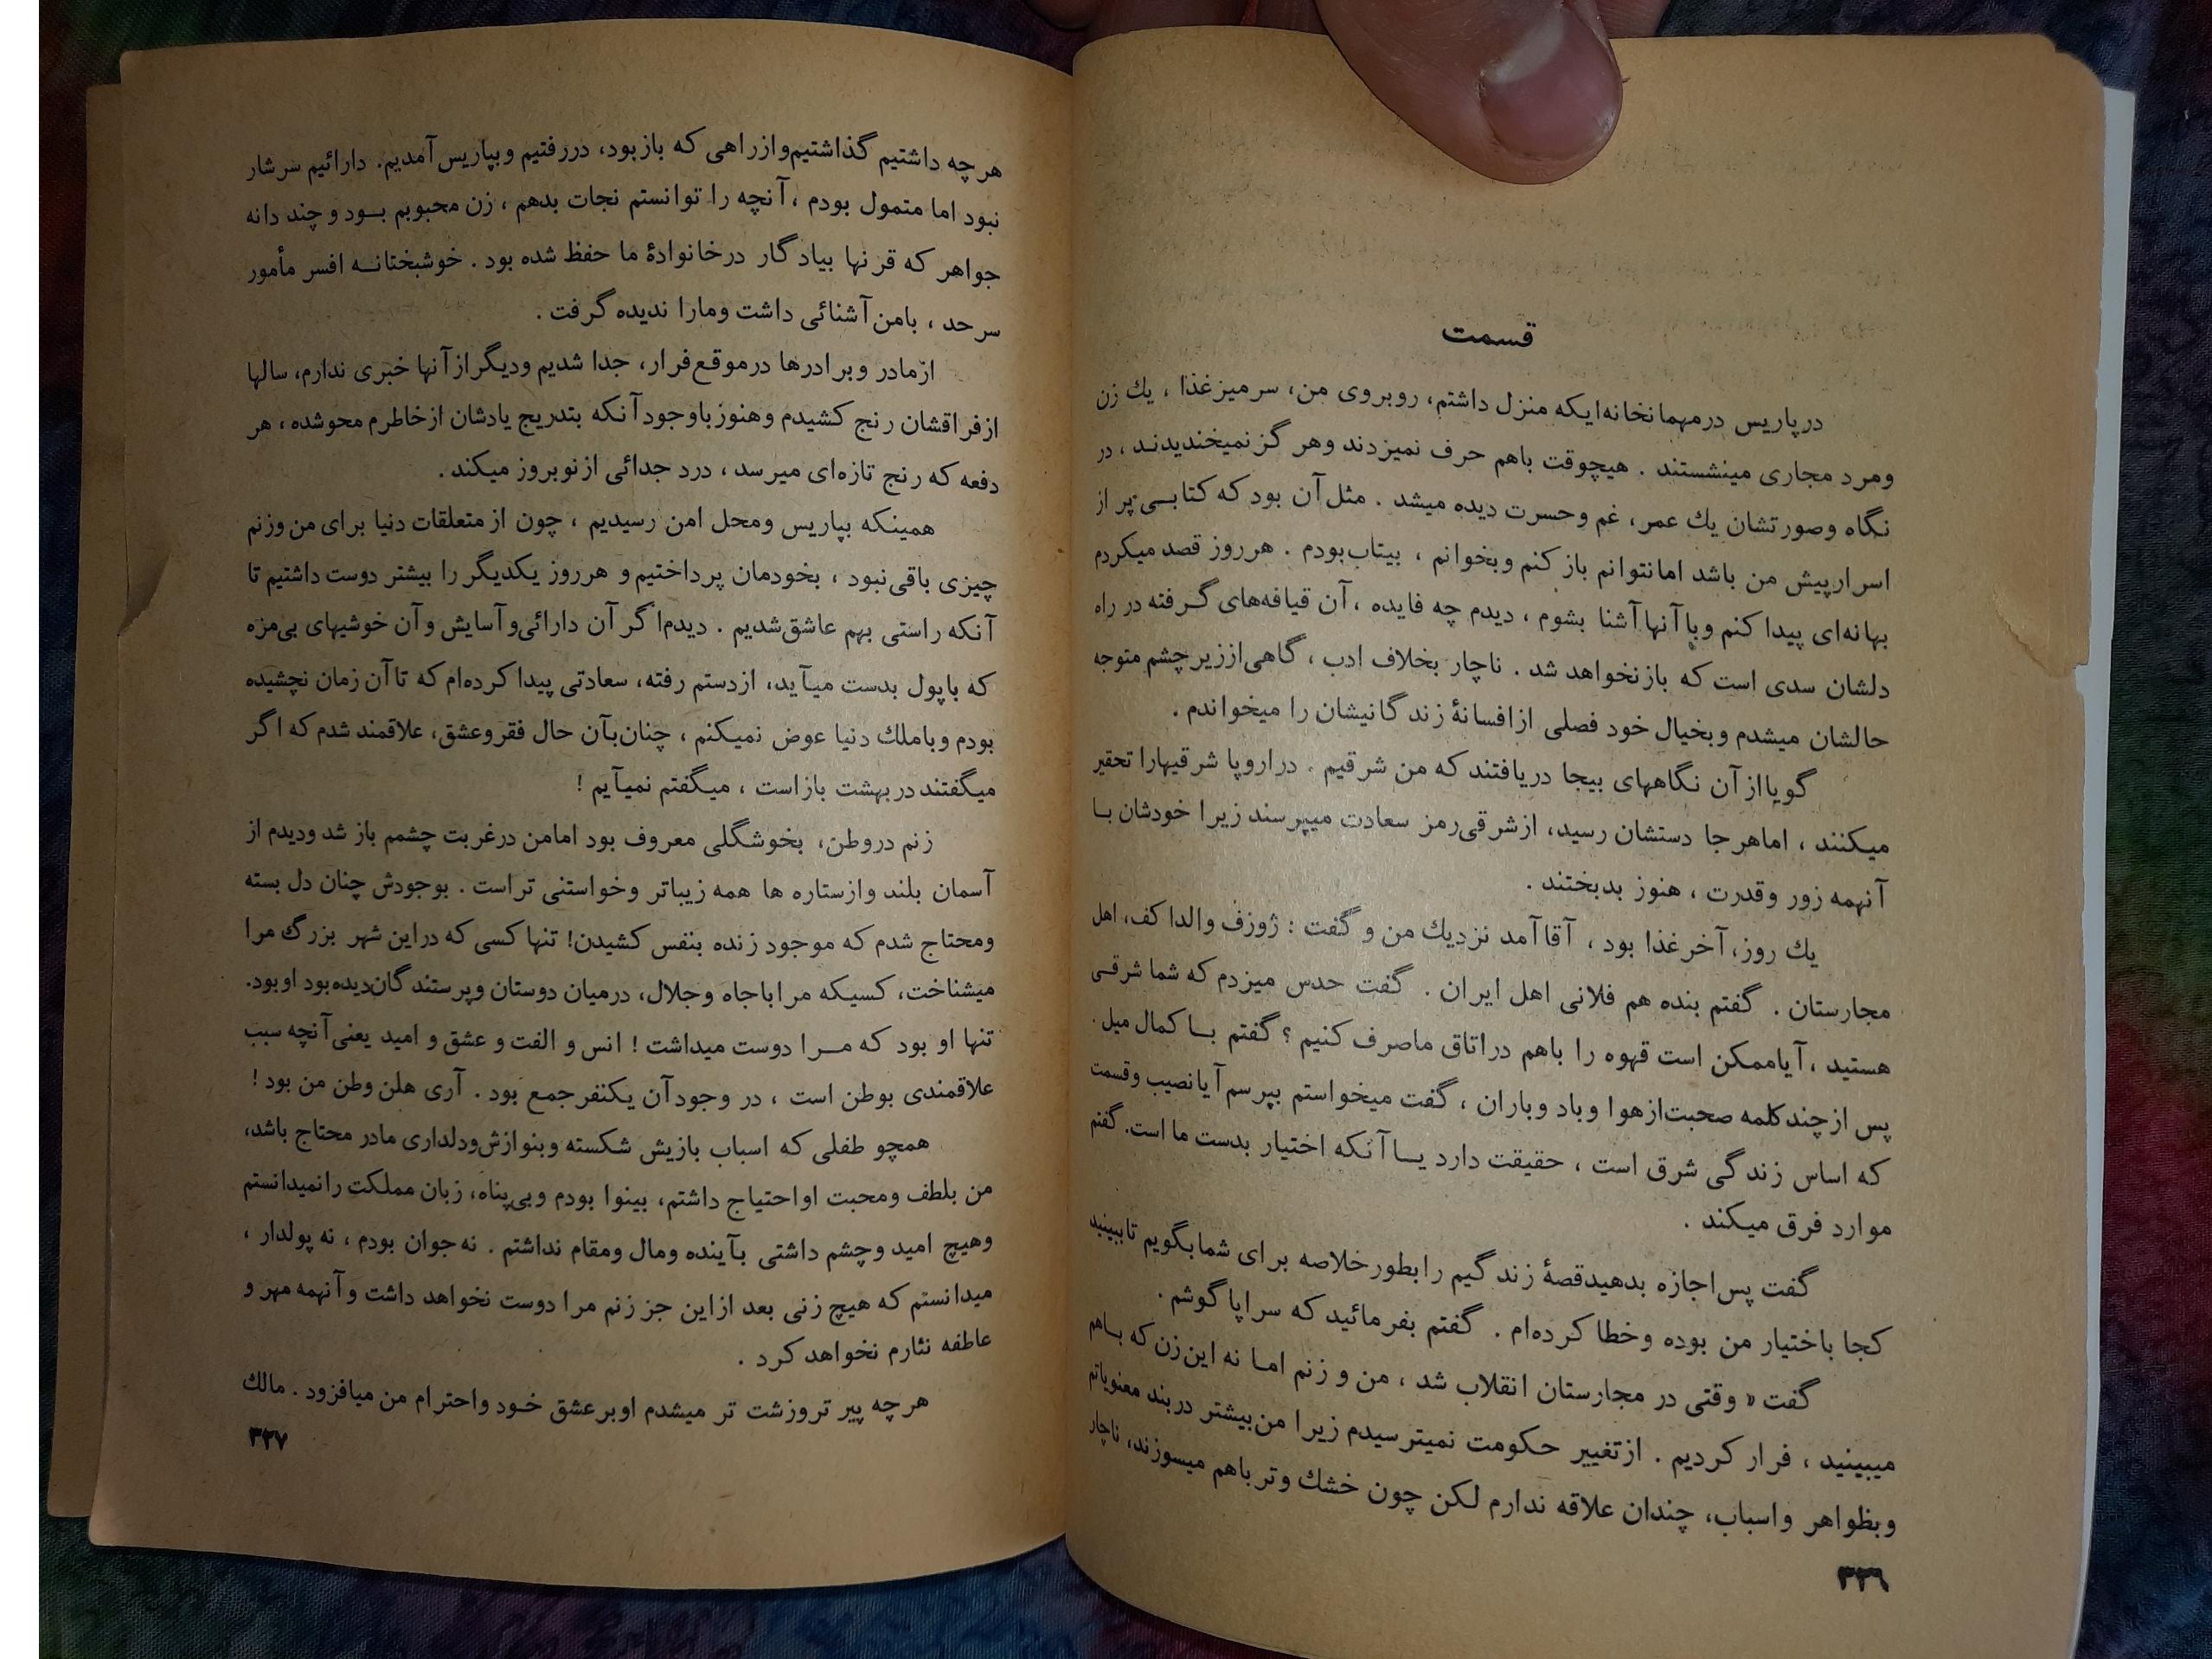 قسمت
درپاریس درمهمانخانه‌ایکه منزل داشتم، روبروی من، سرمیزغذا ، یك زن
ومرد مجاری مینشستند . هیچوقت باهم حرف نمیزدند وهر گز نمیخندیدند ، در
نگاه وصورتشان یك عمر، غم وحسرت دیده میشد . مثل آن بود که کتابی پر از
اسرارپیش من باشد امانتوانم باز کنم وبخوانم ، بیتاب‌بودم . هرروز قصد میکردم
بهانه‌ای پیدا کنم وبا آنها آشنا بشوم ، دیدم چه فایده ، آن قیافه‌های گرفته در راه
دلشان سدی است که بازنخواهد شد . ناچار بخلاف ادب ، گاهی‌اززیر چشم متوجه
حالشان میشدم وبخیال خود فصلی ازافسانهٔ زندگانیشان را میخواندم .
گویا از آن نگاههای بیجا دریافتند که من شرقیم . دراروپا شرقیهارا تحقیر
میکنند ، اماهرجا دستشان رسید، ازشرقی رمز سعادت میپرسند زیرا خودشان با
آنهمه زور وقدرت ، هنوز بدبختند .
یك روز، آخرغذا بود ، آقا آمد نزدیك من و گفت : ژوزف والدا کف، اهل
مجارستان . گفتم بنده هم فلانی اهل ایران . گفت حدس میزدم که شما شرقی
هستید ، آیاممکن است قهوه را باهم دراتاق ماصرف کنیم ؟ گفتم با کمال میل .
پس از چند کلمه صحبت‌ازهوا وباد وباران ، گفت میخواستم بپرسم آیا نصیب وقسمت
که اساس زندگی شرق است ، حقیقت دارد یا آنکه اختیار بدست ما است. گفتم
موارد فرق میکند .
گفت پس اجازه بدهیدقصهٔ زندگیم رابطورخلاصه برای شمابگویم تاببینید
کجا باختیار من بوده وخطا کرده‌ام . گفتم بفرمائید که سراپا گوشم .
گفت « وقتی در مجارستان انقلاب شد ، من و زنم اما نه این زن که باهم
میبینید ، فرار کردیم . ازتغییر حکومت نمیترسیدم زیرا من‌بیشتر دربند معنویاتم
وبظواهر واسباب، چندان علاقه ندارم لکن چون خشك وتر باهم میسوزند، ناچار
۳۳۶
هرچه داشتیم گذاشتیم‌وازراهی که بازبود، دررفتیم وبپاریس آمدیم. دارائیم سرشار
نبود اما متمول بودم ، آنچه را توانستم نجات بدهم ، زن محبوبم بود و چند دانه
جواهر که قرنها بیادگار درخانوادهٔ ما حفظ شده بود . خوشبختانه افسر مأمور
سرحد ، بامن آشنائی داشت ومارا ندیده گرفت .
ازمادر وبرادرها درموقع‌فرار، جدا شدیم ودیگراز آنها خبری ندارم، سالها
ازفراقشان رنج کشیدم وهنوزباوجود آنکه بتدریج یادشان ازخاطرم محوشده ، هر
دفعه که رنج تازه‌ای میرسد ، درد جدائی ازنوبروز میکند .
همینکه بپاریس ومحل امن رسیدیم ، چون از متعلقات دنیا برای من وزنم
چیزی باقی‌نبود ، بخودمان پرداختیم و هرروز یکدیگر را بیشتر دوست داشتیم تا
آنکه راستی بهم عاشق‌شدیم . دیدم‌اگر آن دارائی‌و آسایش و آن خوشیهای بی‌مزه
که باپول بدست میآید، ازدستم رفته، سعادتی پیدا کرده‌ام که تا آن زمان نچشیده
بودم وباملك دنیا عوض نمیکنم ، چنان‌بآن حال فقروعشق، علاقمند شدم که اگر
میگفتند دربهشت بازاست ، میگفتم نمیآیم !
زنم دروطن، بخوشگلی معروف بود امامن درغربت چشمم باز شد ودیدم از
آسمان بلند وازستاره ها همه زیباتر وخواستنی تراست . بوجودش چنان دل بسته
ومحتاج شدم که موجود زنده بنفس کشیدن! تنها کسی که دراین شهر بزرگ مرا
میشناخت، کسیکه مراباجاه وجلال، درمیان دوستان وپرستندگان‌دیده‌بود اوبود.
تنها او بود که مرا دوست میداشت ! انس و الفت و عشق و امید یعنی آنچه سبب
علاقمندی بوطن است ، در وجود آن یکنفر جمع بود . آری هلن وطن من بود !
همچو طفلی که اسباب بازیش شکسته وبنوازش‌ودلداری مادر محتاج باشد،
من بلطف ومحبت اواحتیاج داشتم، بینوا بودم وبی‌پناه، زبان مملکت رانمیدانستم
وهیچ امید وچشم داشتی بآینده ومال ومقام نداشتم . نه جوان بودم ، نه پولدار ،
میدانستم که هیچ زنی بعد ازاین جز زنم مرا دوست نخواهد داشت و آنهمه مهر و
عاطفه نثارم نخواهد کرد .
هرچه پیر تروزشت تر میشدم اوبرعشق خود واحترام من میافزود . مالك
۳۳۷